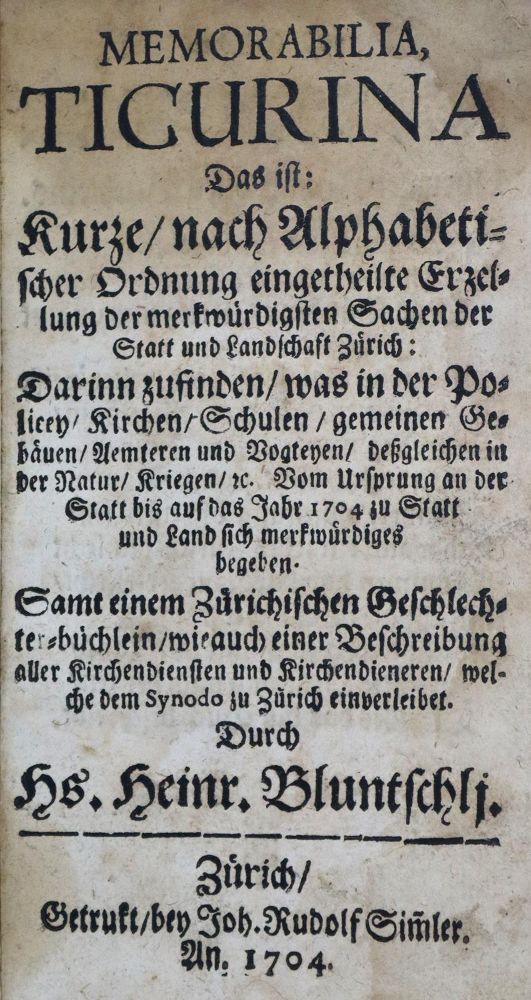 MEMORABILIA,
TIGURINA
Das ist:
Kurze/ nach Alphabeti-
scher Ordnung eingetheilte Erzel-
lung der merkwürdigsten Sachen der
Statt und Landschaft Zürich:
Darinn zufinden/ was in der Po-
licey/ Kirchen/ Schulen/ gemeinen Ge-
bäuen/ Aemteren und Vogteyen/ deßgleichen in
der Natur/ Kriegen/ ꝛc. Vom Ursprung an der
Statt bis auf das Jahr 1704 zu Statt
und Land sich merkwürdiges
begeben.
Samt einem Zürichischen Geschlech-
ter-büchlein/ wie auch einer Beschreibung
aller Kirchendiensten und Kirchendieneren/ wel-
che dem Synodo zu Zürich einverleibet.
Durch
Hs. Heinr. Bluntschlj.
Zürich/
Getrukt/ bey Joh. Rudolf Sim̃ler.
An. 1704.